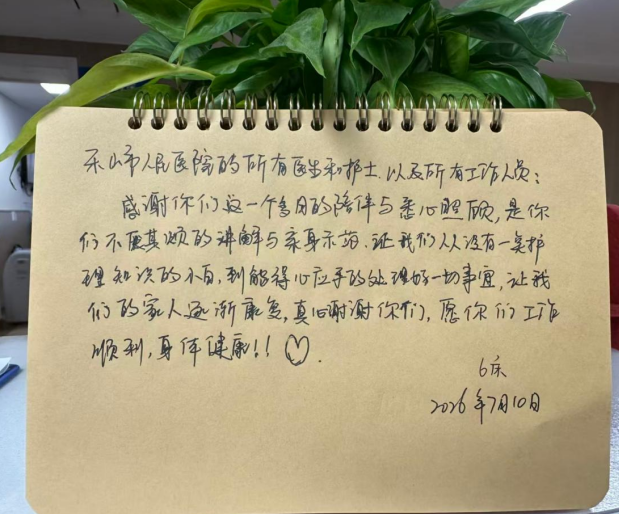 乐山市人民医院的所有医生和护士、以及所有工作人员：
感谢你们这一个多月的陪伴与悉心照顾，是你
们不厌其烦的讲解与亲身示范，让我们从没有一点护
理知识的小白，到能得心应手的处理好一切事宜，让我
们的家人逐渐康复，真心谢谢你们，愿你们工作
顺利，身体健康！！♡.
6床
2026年7月10日